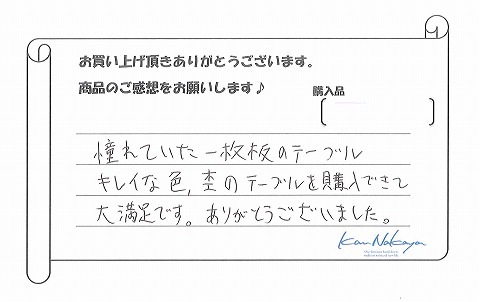 お買い上げ頂きありがとうございます。
商品のご感想をお願いします♪
購入品
憧れていた一枚板のテーブル
キレイな色,杢のテーブルを購入できて
大満足です。ありがとうございました。
Kan Nakaya